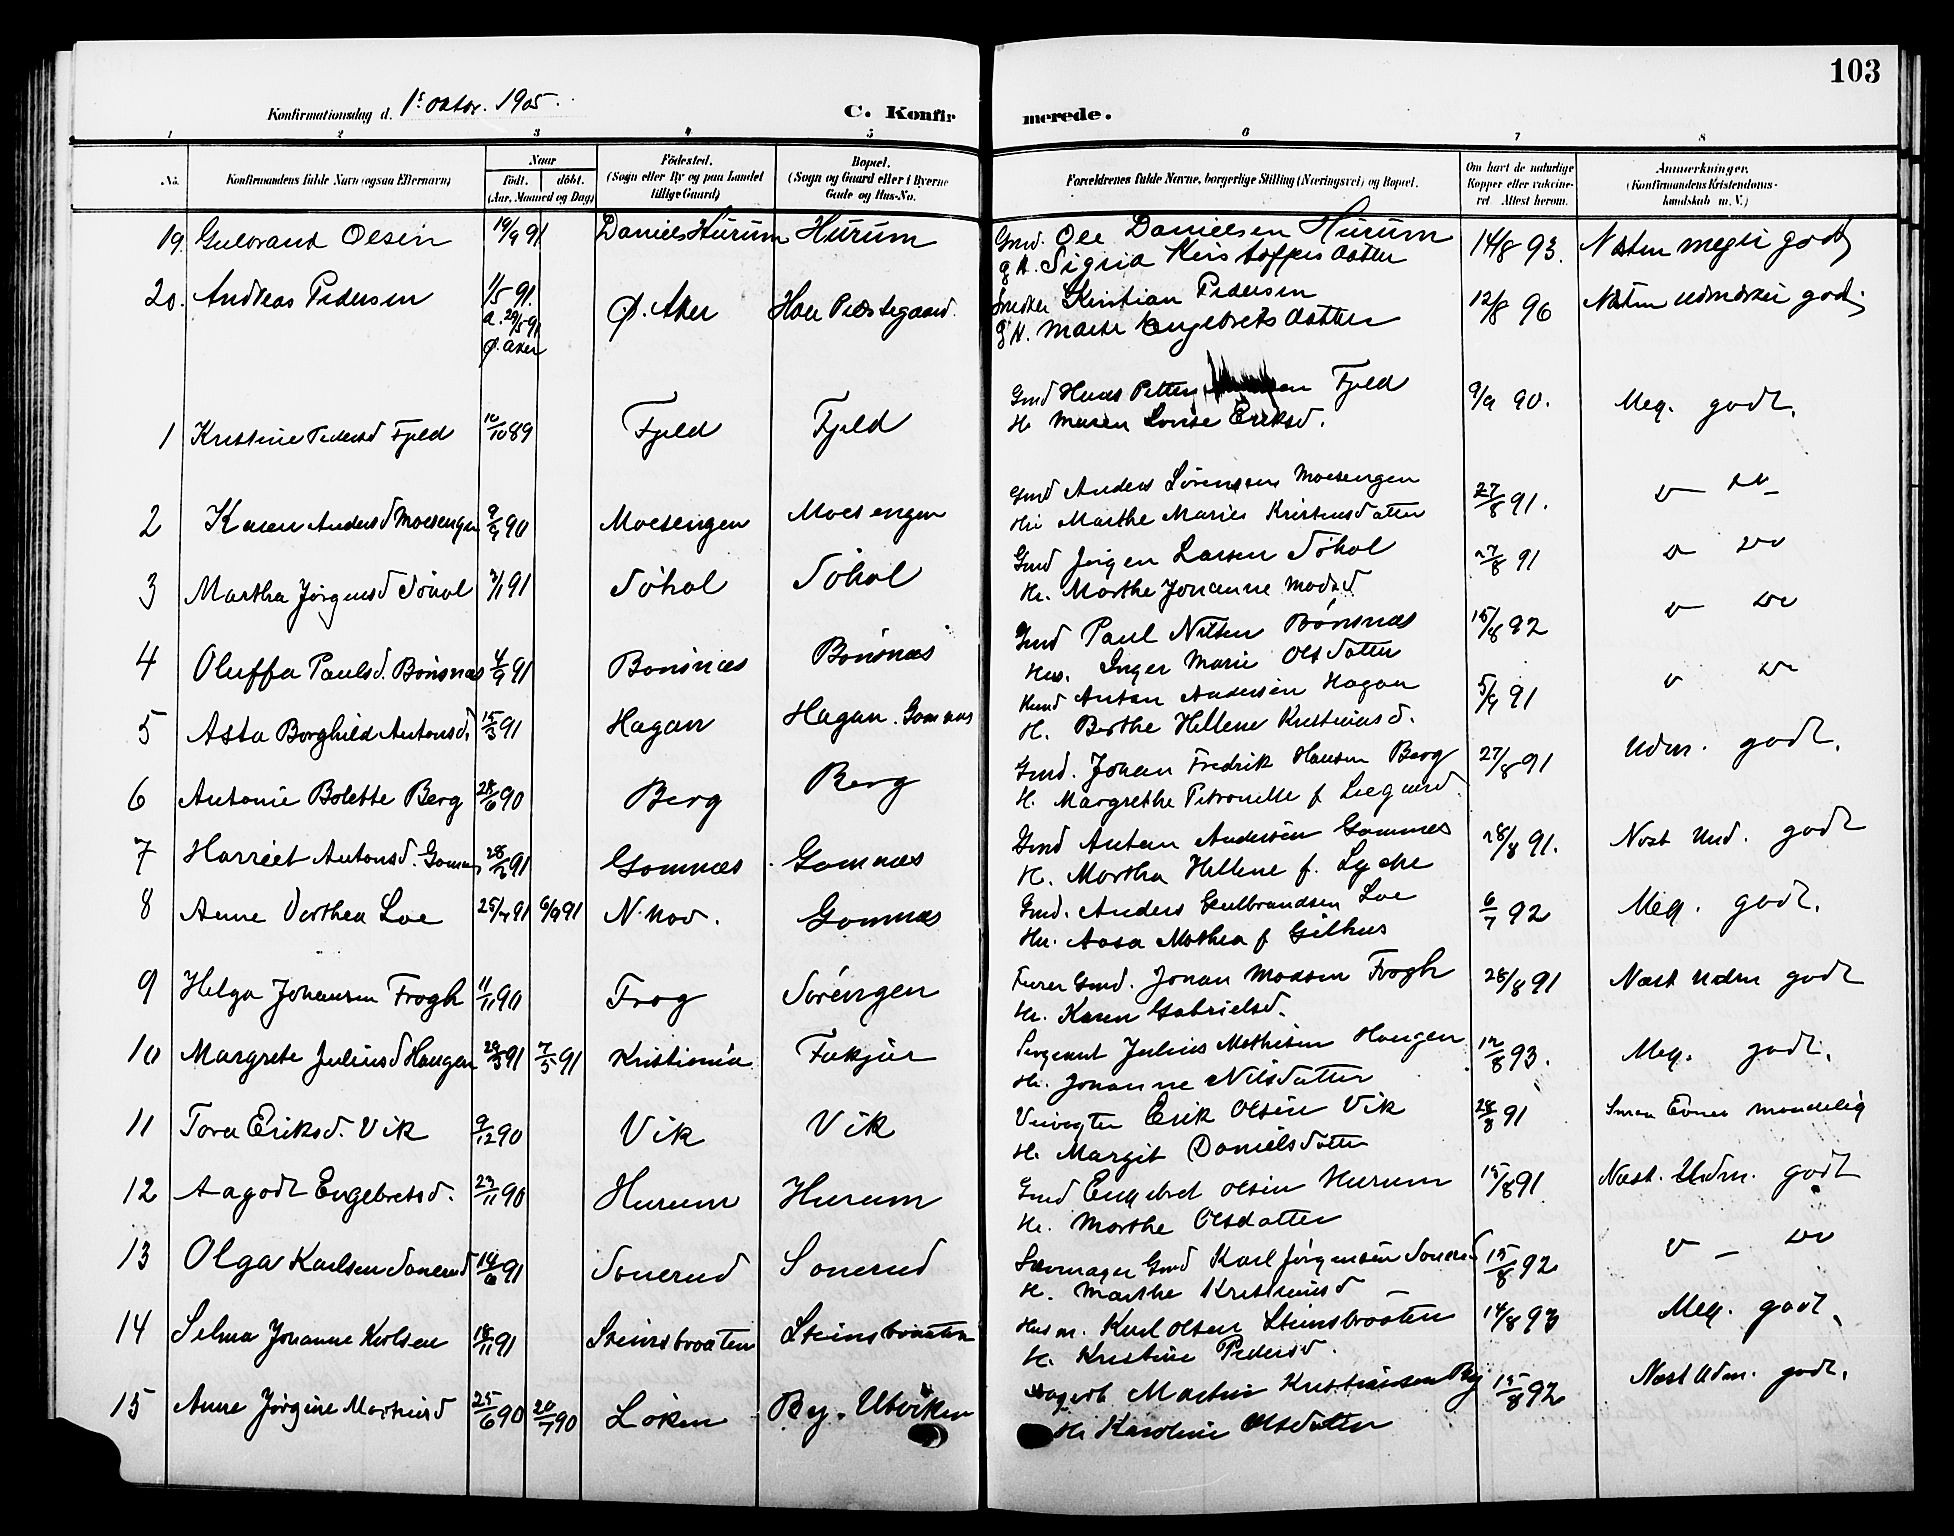 103
Konfirmationsdag d. 1s oktbr. 1905.
C. Konfirmerede.
1 2 3 4 5 6 7 8
No. Konfirmandens fulde Navn (ogsaa Efternavn) Naar født. døbt. (Aar, Maaned og Dag) Fødested. (Sogn eller By og paa Landet tillige Gaard) Bopæl. (Sogn og Gaard eller i Byerne Gade og Hus-No. Forældrenes fulde Navne, borgerlige Stilling (Næringsvei) og Bopæl. Om havt de naturlige Kopper eller vaccineret. Attest herom. Anmærkninger. (Konfirmandens Kristendomskundskab m. V.)
19. Gulbrand Olsen 19/9 91 Daniels Hurum Hurum Gmd. Ole Danielsen Hurum 14/8 93. Næsten meget godt
g H. Sigrid Kristoffersdatter
20. Andreas Pedersen 1/5 91. Ø. Aker Hole Præstegaard. Smeder Kristian Pedersen 12/8 96 Næsten udmærket godt
d. 29/5 91 g H. Marte Engebretsdatter
Ø. Aker
1 Kristine Pedersd Fjeld 12/10 89 Fjeld Fjeld Gmd Hans Petter Fjeld 9/9 90. Meg. godt.
H. Maren Lovise Eriksd.
2 Karen Andersd Moesengen 9/9 90 Moesengen Moesengen Gmd Anders Sørenssen Moesengen 27/8 91.
Hu Marthe Marie Kristensdatter
3 Martha Jørgensd Søhol 3/1 91 Søhol Søhol Gmd Jørgen Larsen Søhol 27/8 91
H. Marthe Johanne Madsd
4 Oluffa Paulsd. Bønsnæs 4/9 91 Bønsnæs Bønsnæs Gmd Paul Nilsen Bønsnæs 15/8 92
Hu. Inger Marie Olsdatter
5 Asta Borghild Antonsd. 15/3 91 Hagan Hagan. Gomnæs Anton Andersen Hagan 5/9 91
H. Berthe Hellene Kristiansd.
6 Antonie Bolette Berg 28/6 90 Berg Berg Gmd. Johan Fredrik Hansen Berg 27/8 91 Udm. godt.
H. Margrethe Petronelle f. Leegaard
7 Harriet Antonsd. Gomnæs 28/2 91 Gomnæs Gomnæs Gmd Anton Andersen Gomnæs 28/8 91. Næst Umd. godt
H. Martha Hellene f. Lycke
8 Anne Dorthea Loe 25/4 91 6/9 91 N. Mod. Gomnæs Gmd. Anders Gulbrandsen Loe 6/7 92 Meg. godt.
Hu. Aasa Mathea f Gilhus
9 Helga Johansen Frogh 11/11 90 Frog Sørengen Gmd. Johan Madsen Frogh 28/8 91 Næst Udm godt
H. Karen Gabrielsd.
10 Margrete Juliusd Haugen 29/3 91 7/5 91 Kristiania Fakjær Sergeant Julius Mathisen Haugen 12/8 93. Meg. godt.
H. Johanne Nilsdatter
11 Tora Eriksd. Vik 9/12 90 Vik Vik Veivogter Erik Olsen Vik 28/8 91 Smaa Evner maadelig
H. Margit Danielsdatter
12 Aagodt Engebretsd. 23/11 90 Hurum Hurum Gmd Engebret Olsen Hurum 15/8 91 Næst. Udm. godt
H. Marthe Olsdatter
13 Olga Karlsen Sonerud 14/6 91 Sonerud Sonerud Gmd Karl Jørgensen Sonerud 15/8 92
H. Marthe Kristiansd
14 Selma Johanne Karlsen 18/11 91 Steinsbraaten Steinsbraaten Husm. Karl Olsen Steinsbraaten 14/8 93 Meg. godt.
H. Kristine Pedersd.
15 Anne Jørgine Martinsd 25/6 90 20/7 90 Løken By. Utviken Martin Kristiansen By 15/8 92 Næst Udm. godt.
H. Karoline Olsdatter